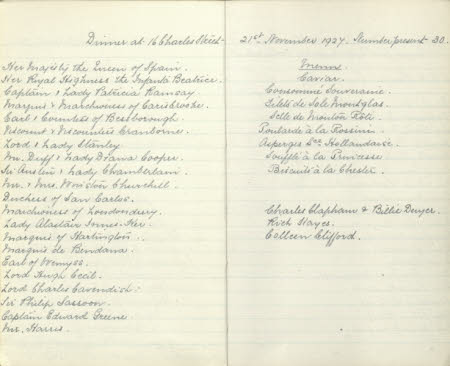 Dinner at 16 Charles Street.
Her Majesty the Queen of Spain.
Her Royal Highness the Infanta Beatrice.
Captain & Lady Patricia Ramsay
Marquis & Marchioness of Carisbrooke.
Earl & Countess of Bessborough.
Viscount & Viscountess Cranborne.
Lord & Lady Stanley
Mr. Duff & Lady Diana Cooper.
Sir Austin & Lady Chamberlain.
Mr. & Mrs. Winston Churchill.
Duchess of San Carlos.
Marchioness of Londonderry.
Lady Alastair Innes-Ker.
Marquis of Hartington.
Marquis de Bendana.
Earl of Wemyss.
Lord Hugh Cecil.
Lord Charles Cavendish.
Sir Philip Sassoon.
Captain Edward Greene
Mr. Harris.
21st November 1927. Number present - 30.
Menu
Caviar.
Consommé Souveraine.
Filets de Sole Montglas.
Selle de Mouton Roti.
Poularde à la Rossini
Asperges Sce Hollandaise.
Soufflé à la Princesse
Biscuits à la Chester.
Charles Clapham & Billie Dwyer.
Rich Hayes.
Colleen Clifford.